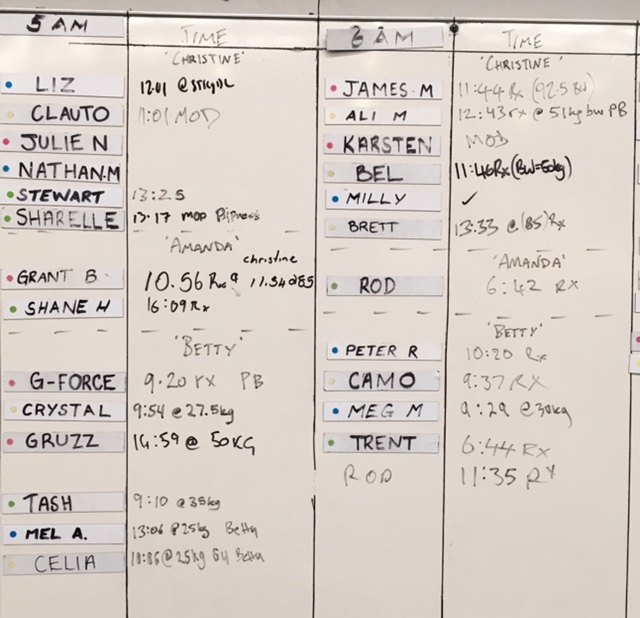 5 AM TIME
'CHRISTINE'
LIZ 12:01 @
CLAUTO 11:01 MOD
JULIE N
NATHAN.M
STEWART 13:25
SHARELLE 13.17 MOD
'AMANDA'
christine
GRANT B 10.56 Rx 11.34@85
SHANE H 16:09 Rx
'BETTY'
G-FORCE 9.20 rx PB
CRYSTAL 9:54 @ 27.5kg
GRUZZ 14:59 @ 50KG
TASH 9:10 @ 35kg
MEL A. 13:06 @ 25kg Betty
CELIA @ 25kg Betty
6 AM TIME
'CHRISTINE'
JAMES M 11:44 Rx (92.5 BW)
ALI M 12:43rx @ 51kg bw PB
KARSTEN MOD
BEL 11:46Rx (BW=60kg)
MILLY ✓
BRETT 13:33 @ (85) Rx
'AMANDA'
ROD 6:42 RX
'BETTY'
PETER R 10:20 Rx
CAMO 9:37 RX
MEG M 9:29 @ 30kg
TRENT 6:44 Rx
ROD 11:35 RX